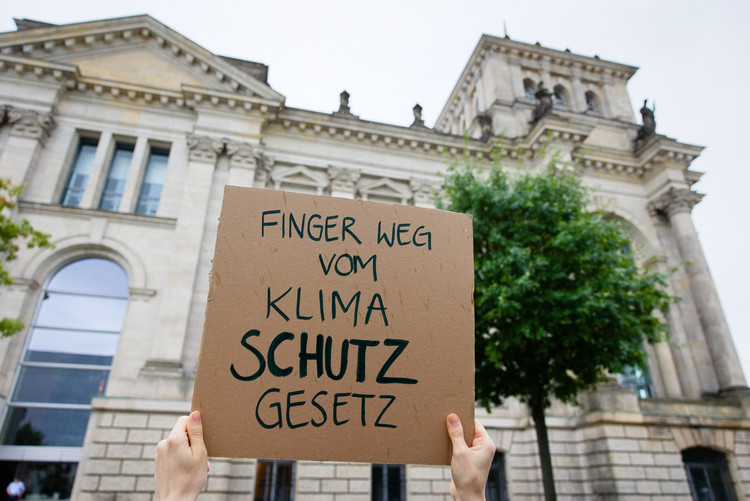 FINGER WEG
VOM
KLIMA
SCHUTZ
GESETZ